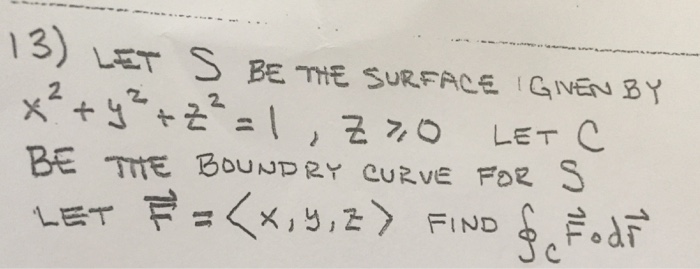 13) LET S BE THE SURFACE GIVEN BY
x² + y² + z² = 1, z ≥ 0 LET C
BE THE BOUNDRY CURVE FOR S
LET F⃗ = ⟨x, y, z⟩ FIND ∮_C F⃗ ∘ dr⃗